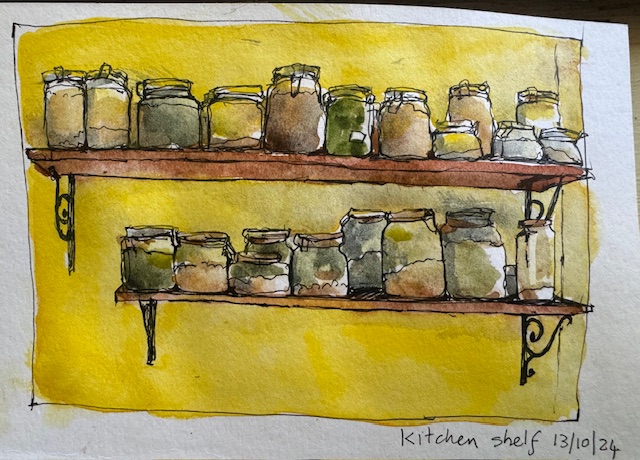 Kitchen shelf 13/10/24